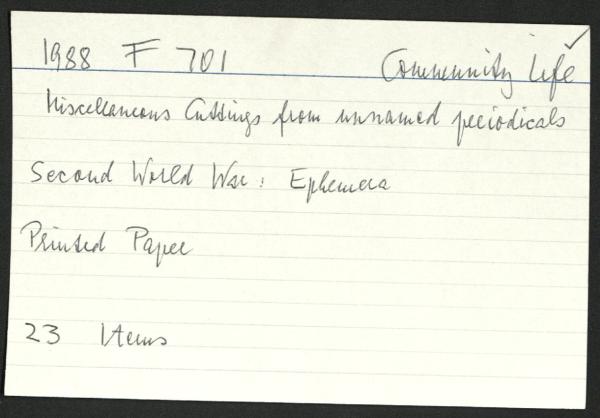 1988 F 701 Community Life
Miscellaneous Cuttings from unnamed periodicals
Second World War: Ephemera
Printed Paper
23 Items